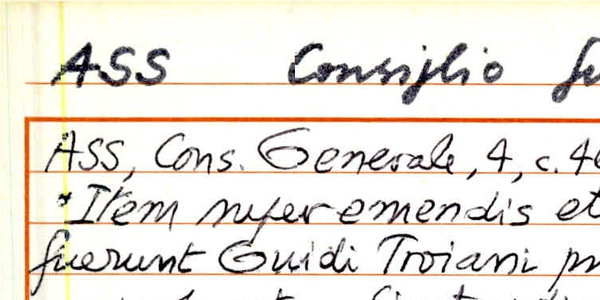 ASS Consiglio
ASS, Cons. Generale, 4, c. 4
"Item super emendis et
fuerunt Guidi Troiani